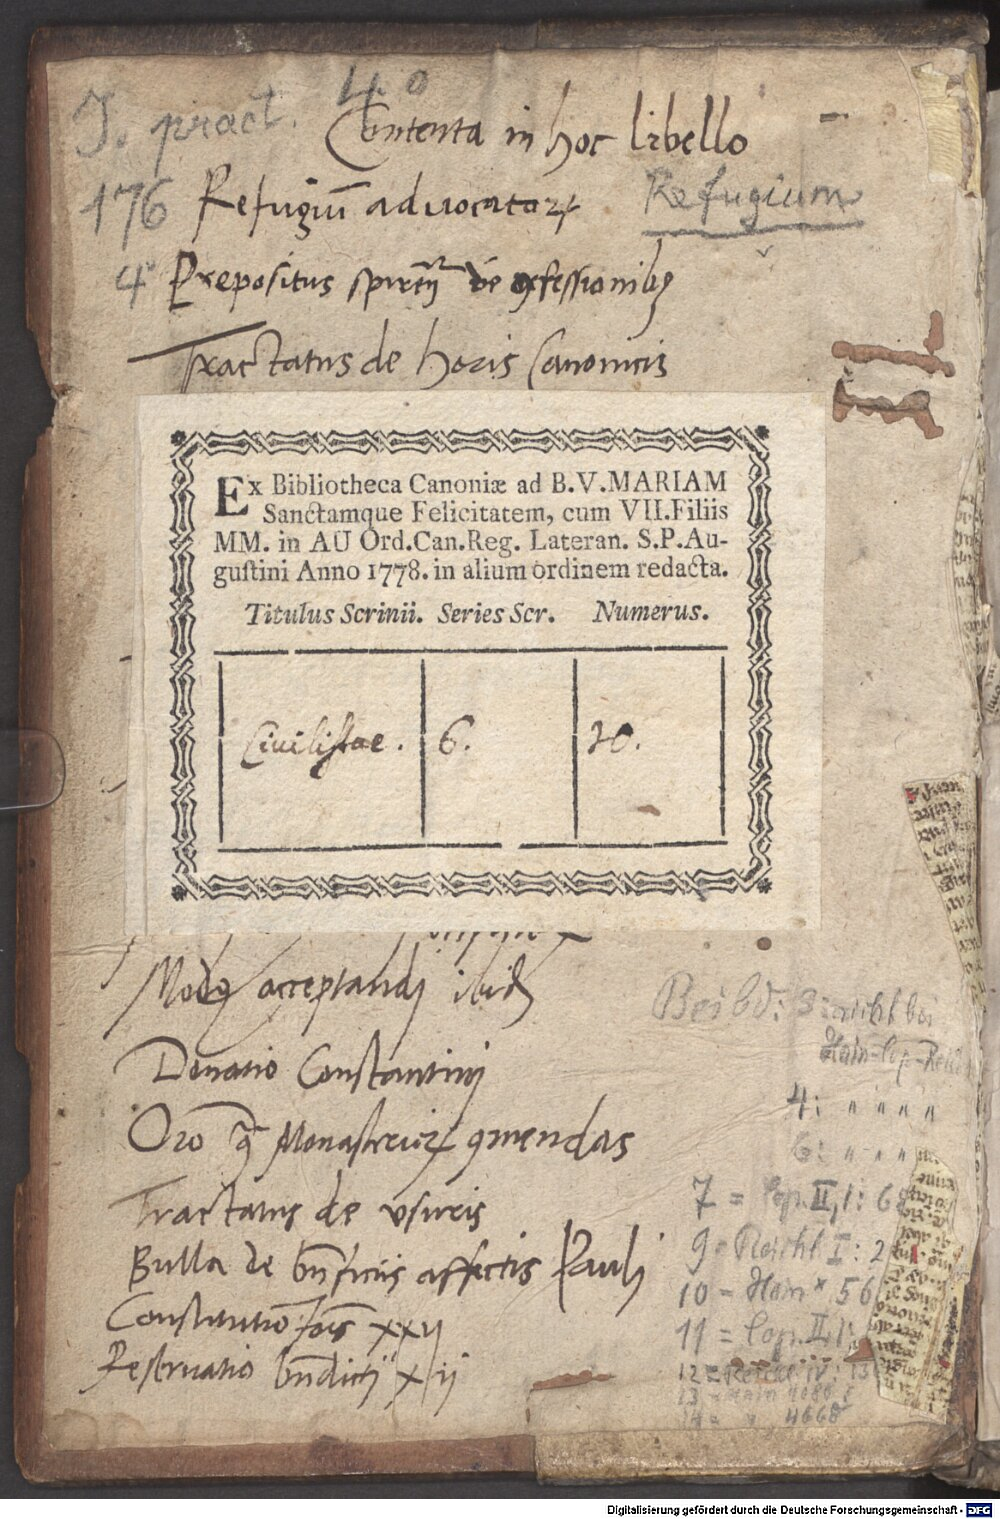 J. pract. 4°
Contenta in hoc libello
176 Refugiū advocatoꝝ Refugium
4° Prepositus spireñ de ꝯfessionibꝫ
Tractatus de horis Canonicis
Ex Bibliotheca Canoniæ ad B.V.MARIAM
Sanctamque Felicitatem, cum VII.Filiis
MM. in AU Ord.Can.Reg. Lateran. S.P.Au-
gustini Anno 1778. in alium ordinem redacta.
Titulus Scrinii. Series Scr. Numerus.
Civilistae. 6. 20.
Modꝰ acceptandj ibid
Donatio Constantinj
Oro Monasterioꝝ ꝯmendas
Tractatus de vsuris
Bulla de bn̄ficiis affectis Pauli
Constitutio Jois xxij
Reservatio bn̄dicti xij
Beibd: 3: nicht bei
Hain-Cop-Reichl
4: " " " "
6: " " "
7 = Cop. II,1: 6
9 = Reichl I: 2
10 = Hain* 56
11 = Cop. II,1:
12 = Reichl IV: 13
13 = Hain
14 = " 4668
Digitalisierung gefördert durch die Deutsche Forschungsgemeinschaft - DFG